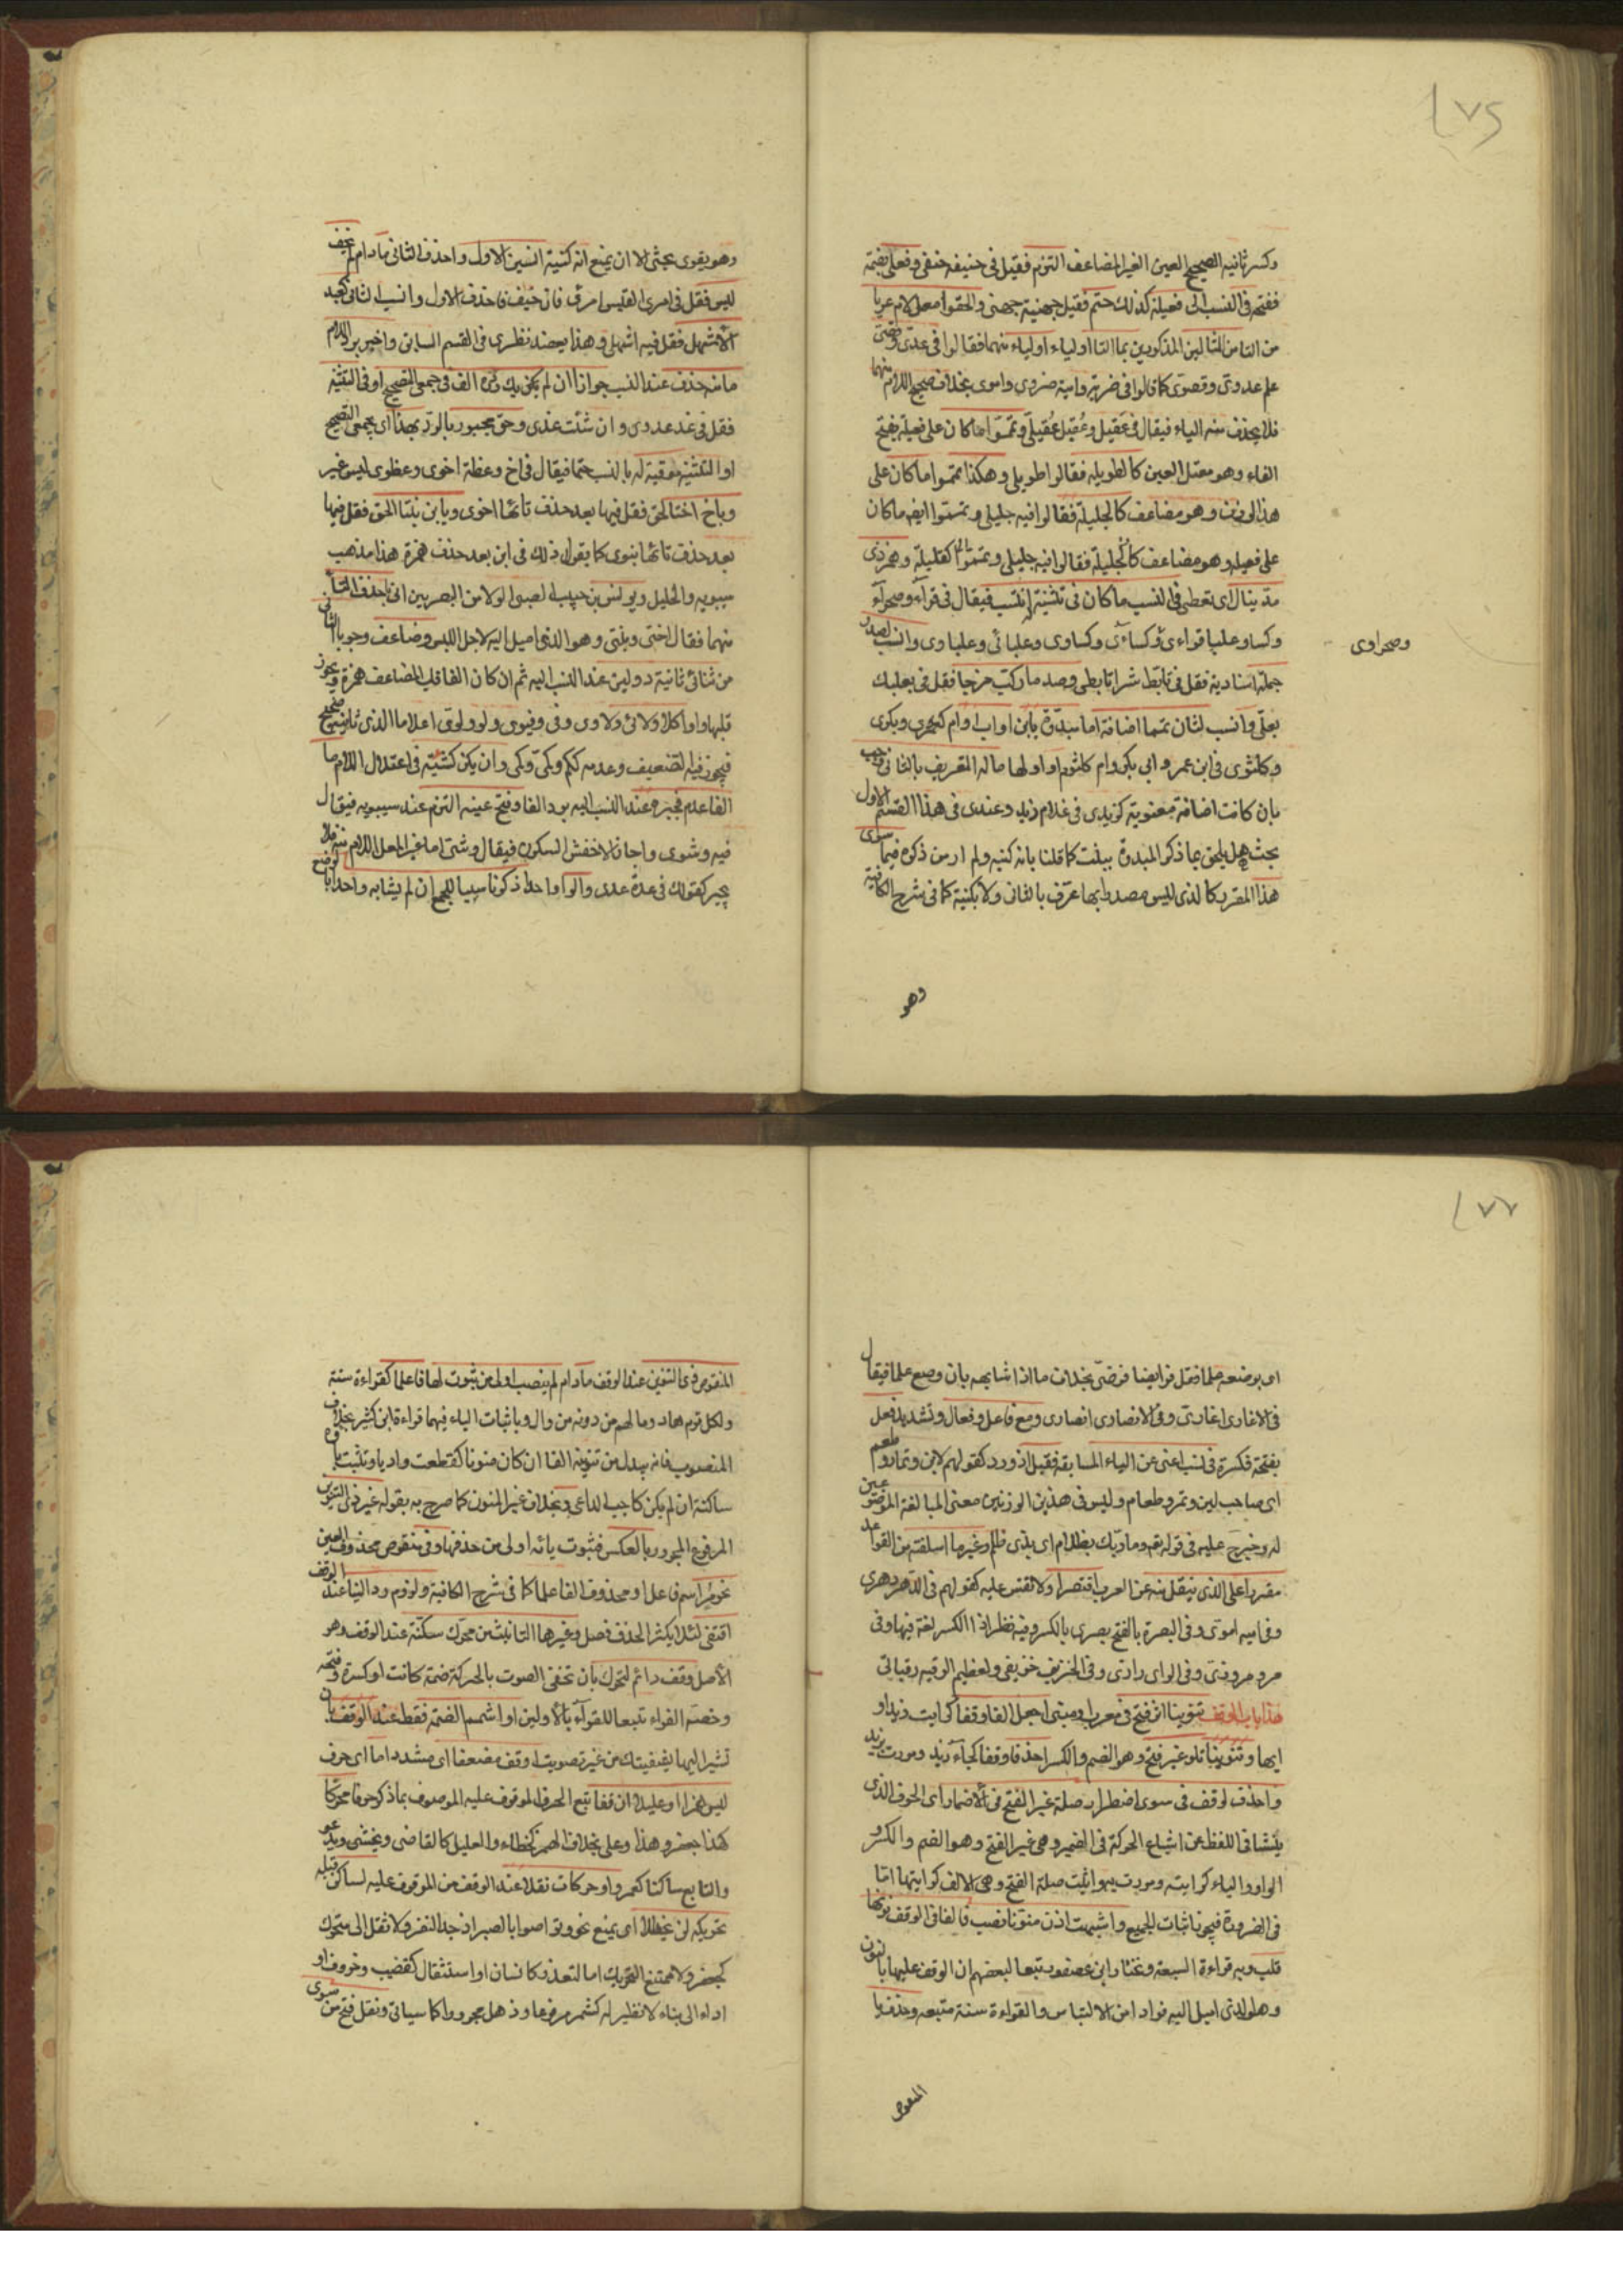 ١٧٥
وكسر ثانيه الصحيح العين الغير المضاعف التزم فقيل في حنيفه حنفي وفعلي بضمة
ففتحة في النسب الى فعيلة كذلك حتم فقيل جهنية جهني والحقوا معل لام عريا
من التا من المثالين المذكورين بما التا اوليا اي اولياء منهما فقالوا في عدي وقصي
علم عدوي وقصوي كما قالوا في ضرية وامية ضروي واموي بخلاف صحيح اللام منهما
فلا يحذف منه الياء فيقال في عقيل وعقيل عقيلي وتمموا ما كان على فعيلة بفتح
الفاء وهو معتل العين كالطويله فقالوا طويلي وهكذا تمموا ما كان على
هذا الوزن وهو مضاعف كالجليلة فقالوا فيه جليلي وتمموا ايضا ما كان
على فعيله وهو مضاعف كالجليلة فقالوا فيه جليلي وتمموا كقليلة وهمز ذي
مد ينال اي يعطى في النسب ما كان في تثنية له انتسب فيقال في قرآء وصحرآء
وكساء وعلباء قراءي وكساءي وكساوي وعلبائي وعلباوي وانسب لصدر
وصحراوى
جملة اسنادية فقل في تابط شرا تابطي وصدر ما ركب مزجا فقل في بعلبك
بعلي وانسب لثان تمما اضافة اما مبدؤة بابن او اب او ام كعمري وبكري
وكلثوي في ابن عمر وابي بكر وام كلثوم او اولها ماله التعريف بالثاني وجب
بان كانت اضافة معنوية كزيدي في غلام زيد وعندي في هذا القسم الاول
بحث هل يلحق بما ذكر المبدوة ببنت كما قلنا بانه كنيه ولم ار من ذكره فيما سوى
هذا المقرر كالذي ليس مصدرا بها عرف بالثاني ولا بكنية كما في شرح الكافية
وهو
وهو يقوى بحثي الا ان يمنع انه كنية انسبن للاول واحذف الثاني ما دام لم يخف
لبس فقل في امرئ القيس امرئي فان خيف فاحذف الاول وانسب الثاني كعبد
الاشهل فقل فيه اشهلي وهذا يعضد نظري في القسم السابق واجبر برد اللام
ما منه حذف عند النسب جوازا ان لم يكن يك رده الف في جمعي التصحيح او في التثنية
فقل في غد غدوي وان شئت غدي وحق مجبور بالرد بهذا اي بجمعي التصحيح
او التثنية توفية له بالنسب حتما فيقال في اخ وعظة اخوي وعظوي ليس غير
وباخ اختا الحق فقل فيها بعد حذف تائها اخوي وبابن بنتا الحق فقل فيها
بعد حذف تائها بنوي كما يقول ذلك في ابن بعد حذف همزة هذا مذهب
سيبويه والخليل ويونس بن حبيب الضبي الولا من البصريين ابى حذف التا
منهما فقال اختي وبنتي وهو الذي اميل اليه لاجل اللبس وضاعف وجوبا الثاني
من ثنائي ثانية ذو لين عند النسب اليه ثم ان كان الفا قلب المضاعف همزة ويجوز
قلبها واوا كلا ولائي ولاوي وفي وفيوي ولو ولوي اعلاما الذي ثانيه صحيح
فيجوز فيه التضعيف وعدمه ككم وكمي وكمي وان يكن كشية في اعتلال اللام ما
الفا عدم فجبره عند النسب اليه برد الفا وفتح عينه التزم عند سيبويه فيقال
فيه وشوي واجاز الاخفش السكون فيقال وشيي اما غير المعل اللام منه فلا
يجبر كقولك في عدة عدي والواحد اذكر ناسبا للجمع ان لم يشابه واحدا بالوضع
١٧٦
اي بوضعه علما فقل فرايضيا فرضي بخلاف ما اذا شابهه بان وضع علما فيقال
في الانماري انماري وفي الانصاري انصاري ومع فاعل وفعال وتشديد فعل
بفتحة فكسرة في نسب اغنى عن الياء السابقة فقبل اذ ورد كقولهم لابن وتمار وطعم
اي صاحب لبن وتمر وطعام وليس في هذين الوزنين معنى المبالغة الموضوعين
له وخرج عليه في قوله تعالى وما ربك بظلام اي بذي ظلم وغير ما اسلفته من القواعد
مقررا على الذي ينقل منه عن العرب اقتصرا ولا تقس عليه كقولهم في الدهر دهري
وفي اميه اموي وفي البصرة بالفتح بصري بالكسر وفيه نظر اذ الكسر لغة فيها وفي
مرو مروزي وفي الراي رازي وفي الخريف خريفي ولعظيم الرقبه رقباني
هذا باب الوقف تنوينا اثر فتح في معرب او مبني اجعل الفا وقفا كرايت زيدا و
ايها وتنوينا تلو غير فتح وهو الضم والكسر احذفا وقفا كجاء زيد ومررت بزيد
واحذف لوقف في سوى اضطرار صلة غير الفتح في الاضمار اي الحرف الذي
ينشا في اللفظ عن اشباع الحركة في الضمير وهي غير الفتح وهو الضم والكسر
الواو والياء كرايته ومررت به واثبت صلة الفتح وهي الالف كرايتها اما
في الضرورة فيجوز اثبات الجميع واشبهت اذن منونا نصب فالفا في الوقف نونها
قلب وبه قراءة السبعة ونختار ابن عصفور تبعا لبعضهم ان الوقف عليها بالنون
وهو الذي اميل اليه فرارا من الالتباس والقراءة سنة متبعة وحذف يا
المنقوص
المنقوص ذي التنوين عند الوقف ما دام لم ينصب اولى من ثبوت لها فاعلما كقراءة سنة
ولكل قوم هاد وما لهم من دونه من وال وباثبات الياء فيهما قراءة ابن كثير بخلاف
المنصوب فانه يبدل من تنوينه الفا ان كان منونا كقطعت واديا وتثبت ياؤه
ساكنة ان لم يكن كاجيب الداعي وبخلاف غير المنون كما صرح به بقوله غير ذي التنوين
المرفوع المجرور بالعكس فثبوت يائه اولى من حذفها وفي منقوص محذوف العين
نحو مر اسم فاعل او محذوف الفا علما كما في شرح الكافية ولزوم رد اليا عند الوقف
اقتفي لئلا يكثر الحذف فصل وغيرها التانيث من محرك سكنه عند الوقف وهو
الاصل وقف رائم التحرك بان تخفي الصوت بالحركة ضمة كانت او كسرة وفتحه
وخصه القراء تبعا للقرآء بالاولين او اشمم الضمه فقط عند الوقف بان
تشير اليها بشفتيك من غير تصويت او قف مضعفا اي مشددا ما اي حرف
ليس همزا او عليلا ان قفا تبع الحرف الموقوف عليه الموصوف بما ذكر حرفا محركا
كهذا جعفر وهذا وعل بخلاف الهمز كخطاء والعليل كالقاضي ويخشى ويدعو
والتابع ساكنا كعمرو او حركات نقلا عند الوقف من الموقوف عليه لساكن قبله
تحريكه لن يحظلا اي يمنع نحو وتواصوا بالصبر اذ جد النقر ولا تنقل الى متحرك
كجعفر ولا ممتنع التحريك اما لتعذر كانسان او استثقال كقضيب وخروف او
اداء الى بناء لا نظير له كبشر مرفوعا وذهل مجرورا كما سياتي ونقل فتح من سوى